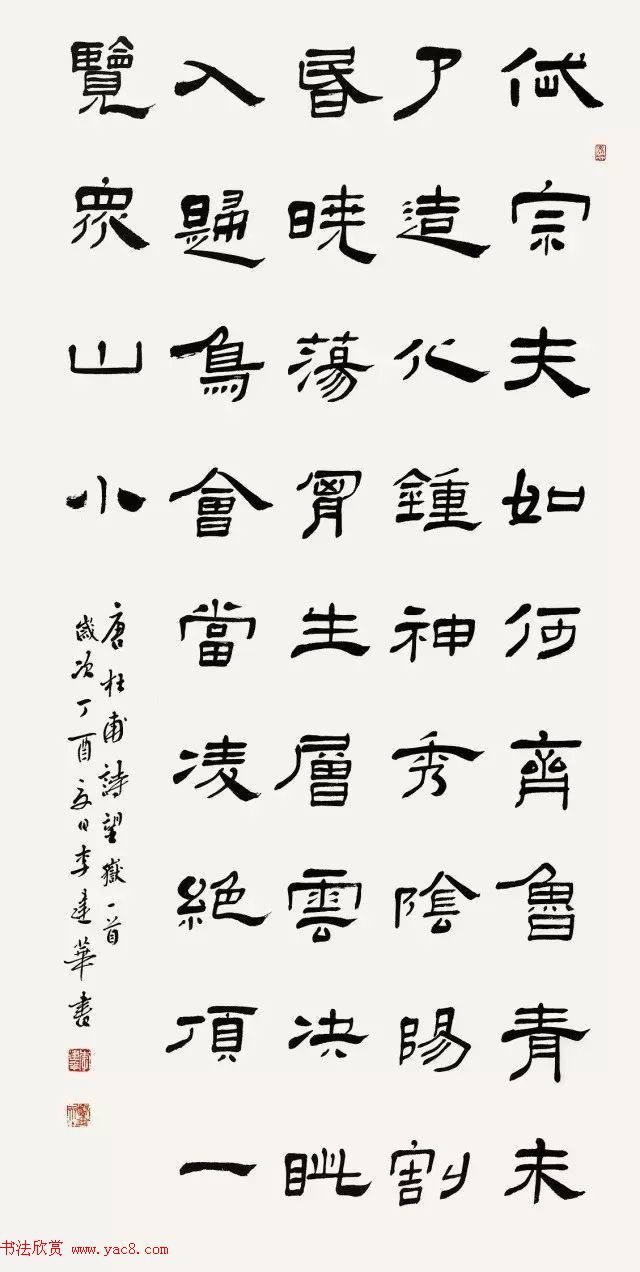 岱宗夫如何齊魯青未
了造化鍾神秀陰陽割
昬暁蕩胷生層雲决眦
入歸鳥會當凌絕頂一
覽眾山小
唐杜甫詩望嶽一首
歲次丁酉夏日李建華書
书法欣赏 www.yac8.com